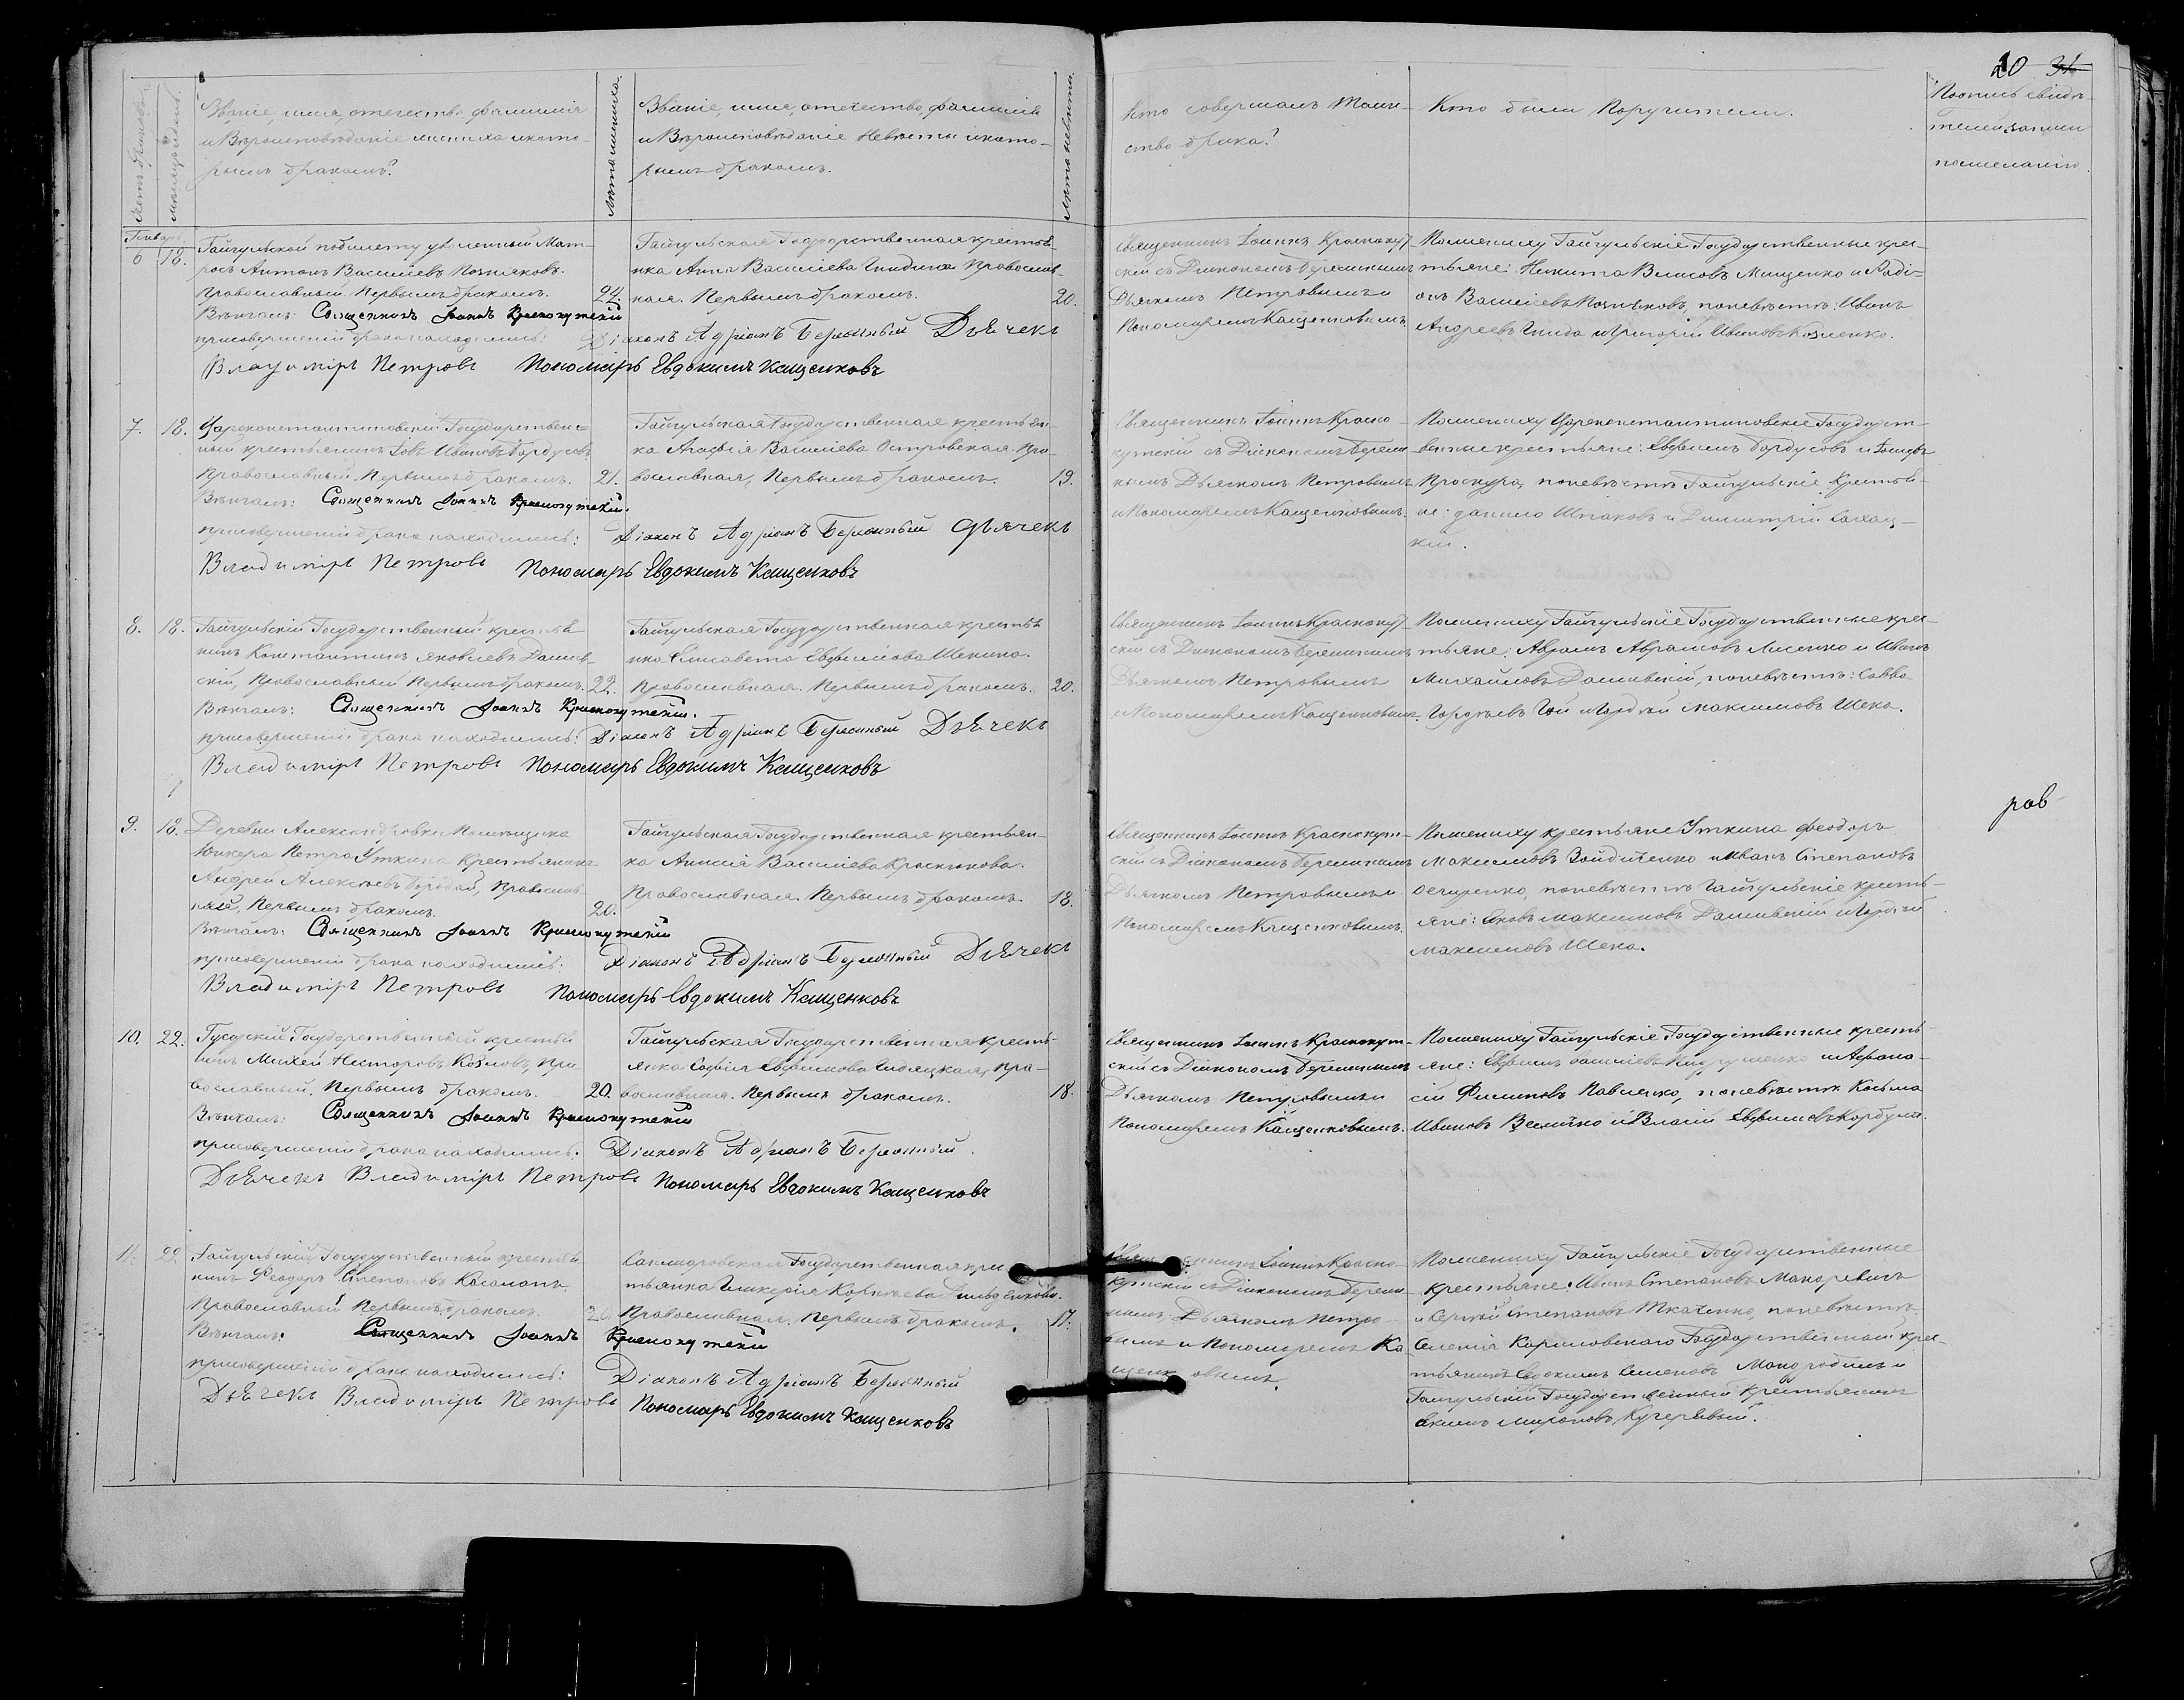 20 31
Счетъ браковъ.
Мѣсяцъ и день.
Званіе, имя, отечество, фамилія
и Вѣроисповѣданіе жениха и кото-
рымъ бракомъ?
Лѣта жениха.
Званіе, имя, отечество, фамилія
и Вѣроисповѣданіе Невѣсты и кото-
рымъ бракомъ.
Лѣта невѣсты.
Кто совершалъ Таин-
ство брака?
Кто были Поручители.
Подпись свидѣ-
телей записи
по желанію.
Генварь
6 18.
Гайчульской по билету уволенный Мат-
росъ Антонъ Василіевъ Позняковъ.
Православный. Первымъ бракомъ. 24.
Вѣнчалъ: Священникъ Іоаннъ Краснокутскій
при совершеніи брака находились: Діаконъ Адріанъ Дьячекъ
Владиміръ Петровъ Пономарь Евдокимъ Кащенковъ
Гайчульская Государственная крестья-
нка Анна Василіева Православ-
ная. Первымъ бракомъ. 20.
Священникъ Іоаннъ Краснокут-
скій съ Діакономъ
Дьячкомъ Петровымъ и
Пономаремъ Кащенковымъ.
По жениху Гайчульскіе Государственные крес-
тьяне: Никита Власовъ Мищенко и Раді-
онъ Василіевъ Позняковъ, по невѣстѣ: Иванъ
Андреевъ и Григорій Ивановъ Козленко.
7. 18.
Цареконстантиновскій Государствен-
ный крестьянинъ Іовъ Ивановъ Бордусовъ
Православный. Первымъ бракомъ. 21.
Вѣнчалъ: Священникъ Іоаннъ Краснокутскій.
при совершеніи брака находились: Діаконъ Адріанъ Дьячекъ
Владиміръ Петровъ Пономарь Евдокимъ Кащенковъ
Гайчульская Государственная крестьян-
ка Агафія Василіева Островская. Пра-
вославная, Первымъ бракомъ. 19.
Священникъ Іоаннъ Красно-
кутскій съ Діакономъ
Дьячкомъ Петровымъ
и Пономаремъ Кащенковымъ.
По жениху Цареконстантиновскіе Государст-
венные крестьяне: Евфимъ Бордусовъ и
Проскура, по невѣстѣ Гайчульскіе Крестья-
не: Данило Шпаковъ и Димитрій
8. 18.
Гайчульскій Государственный крестья-
нинъ Константинъ Яковлевъ Дашев-
скій, Православный Первымъ бракомъ. 22.
Вѣнчалъ: Священникъ Іоаннъ Краснокутскій.
при совершеніи брака находились: Діаконъ Адріанъ Дьячекъ
Владиміръ Петровъ Пономарь Евдокимъ Кащенковъ
Гайчульская Государственная крестья-
нка Елисавета Евфимова Щекина.
Православная. Первымъ бракомъ. 20.
Священникъ Іоаннъ Краснокут-
скій съ Діакономъ
Дьячкомъ Петровымъ
и Пономаремъ Кащенковымъ.
По жениху Гайчульскіе Государственные крес-
тьяне: Аврамъ Аврамовъ Лисенко и Иванъ
Михайловъ Дашевскій, по невѣстѣ: Савва
Гордѣевъ Гой и Гордѣй Максимовъ Щека.
9. 18.
Деревни Александровки Помѣщика
Юнкера Петра Уткина Крестьянинъ
Андрей Алексѣевъ Бородай, Православ-
ный, Первымъ бракомъ. 20.
Вѣнчалъ: Священникъ Іоаннъ Краснокутскій
при совершеніи брака находились: Діаконъ Адріанъ Дьячекъ
Владиміръ Петровъ Пономарь Евдокимъ Кащенковъ
Гайчульская Государственная крестьян-
ка Анисія Василіева Красникова.
Православная. Первымъ бракомъ. 18.
Священникъ Іоаннъ Краснокут-
скій съ Діакономъ
Дьячкомъ Петровымъ и
Пономаремъ Кащенковымъ.
По жениху крестьяне Уткина Феодоръ
Максимовъ и Иванъ Степановъ
по невѣстѣ Гайчульскіе кресть-
яне: Яковъ Максимовъ Дашевскій и Гордѣй
Максимовъ Щека.
рав
10. 22.
Государственный крестья-
нинъ Михей Несторовъ Козловъ, Пра-
вославный, Первымъ бракомъ. 20.
Вѣнчалъ: Священникъ Іоаннъ Краснокутскій
при совершеніи брака находились: Діаконъ Адріанъ
Дьячекъ Владиміръ Петровъ Пономарь Евдокимъ Кащенковъ
Гайчульская Государственная Кресть-
янка Софія Евфимова Пра-
вославная. Первымъ бракомъ. 18.
Священникъ Іоаннъ Краснокут-
скій съ Діакономъ
Дьячкомъ Петровымъ и
Пономаремъ Кащенковымъ.
По жениху Гайчульскіе Государственные кресть-
яне: Евфимъ Василіевъ и Афана-
сій Филиповъ Павленко, по невѣстѣ Косьма
Ивановъ Величко и Власій Евфимовъ
11. 22.
Гайчульскій Государственный крестья-
нинъ Феодоръ Степановъ
Православный Первымъ бракомъ. 20.
Вѣнчалъ: Священникъ Іоаннъ Краснокутскій
при совершеніи брака находились: Діаконъ Адріанъ
Дьячекъ Владиміръ Петровъ Пономарь Евдокимъ Кащенковъ
Государственная крес-
тьянка Гликерія
Православная. Первымъ бракомъ. 17.
Священникъ Іоаннъ Красно-
кутскій съ Діакономъ
Дьячкомъ Петро-
вымъ и Пономаремъ Ка-
щенковымъ.
По жениху Гайчульскіе Государственные
крестьяне: Иванъ Степановъ Макаревичъ
и Сергѣй Степановъ Ткаченко, по невѣстѣ
Селенія Государственный крес-
тьянинъ Евдокимъ Семеновъ и
Гайчульскій Государственный Крестьянинъ
Мироновъ Кучерявый.